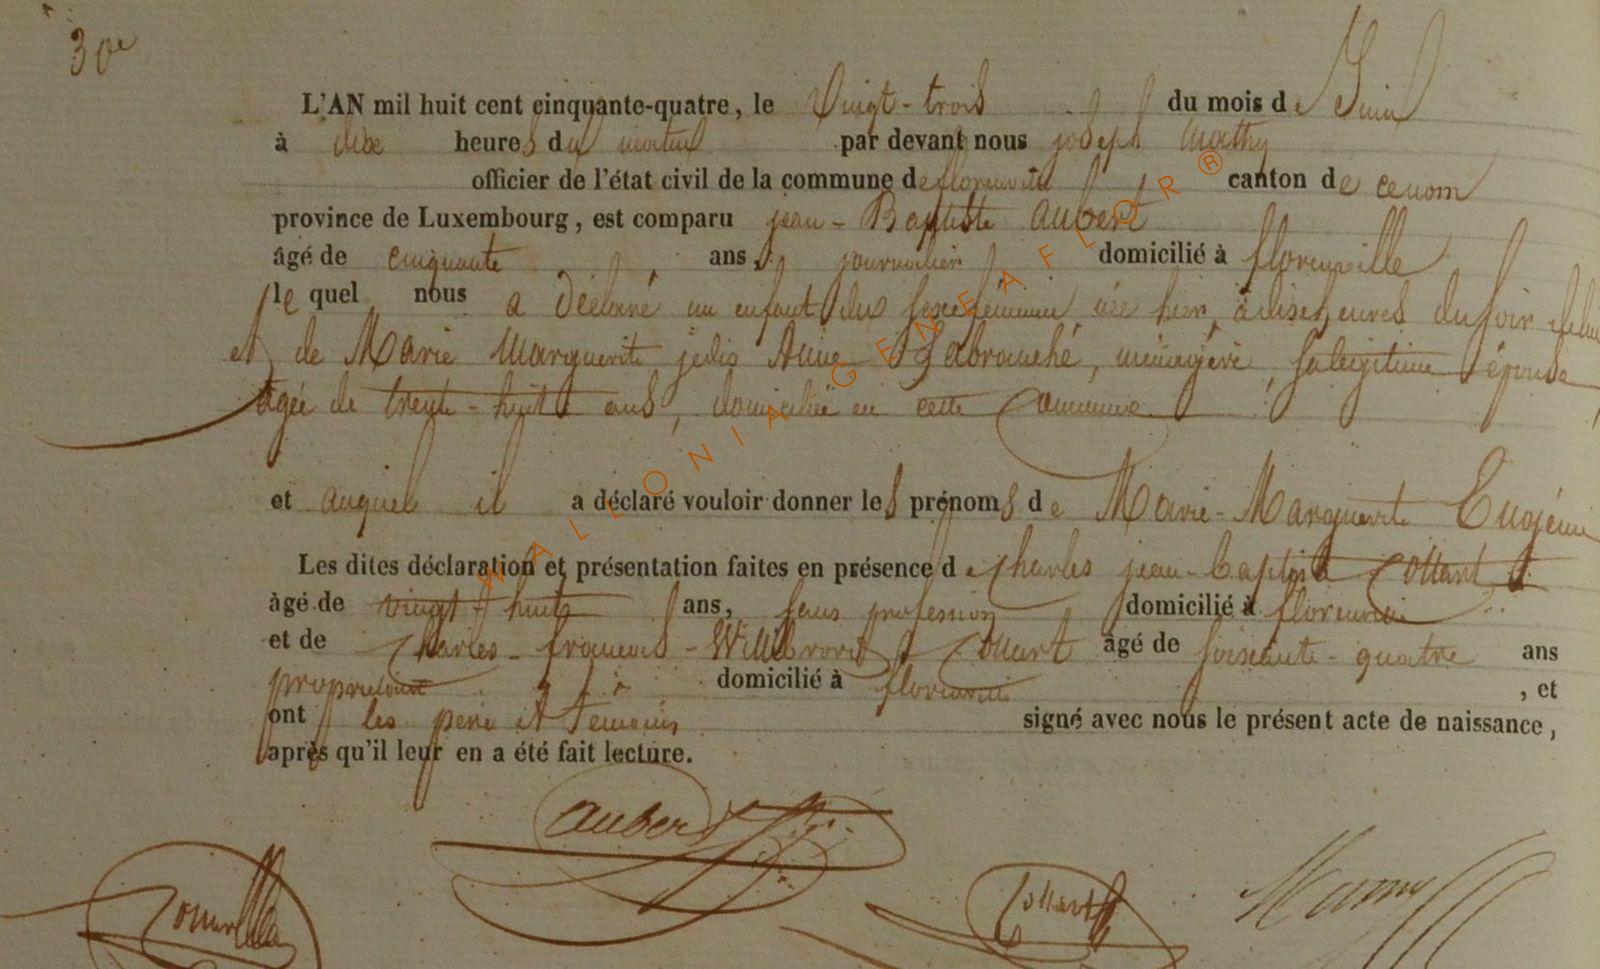 30e
L'AN mil huit cent cinquante-quatre, le Vingt-trois du mois de Juin
à dix heures du matin par devant nous joseph Mathy
officier de l'état civil de la commune de florenville canton de ce nom
province de Luxembourg, est comparu jean-Baptiste aubert
âgé de cinquante ans, journalier domicilié à florenville
le quel nous a déclaré un enfant du sexe féminin née hier, à dix heures du soir de lui
et de Marie Marguerite jadis Anne Labranché, ménagère, sa légitime épouse
agée de trente-huit ans, domiciliée en cette Commune
et auquel il a déclaré vouloir donner les prénoms de Marie-Marguerite Eugénie
Les dites déclaration et présentation faites en présence de Charles jean-baptiste Collart
âgé de vingt-huit ans, sans profession domicilié à florenville
et de Charles-françois-Willibrord Collart âgé de soixante-quatre ans
propriétaire domicilié à florenville, et
ont les père et témoins signé avec nous le présent acte de naissance,
après qu'il leur en a été fait lecture.
aubert
Collart
WALLONIA GENEAFLOR®